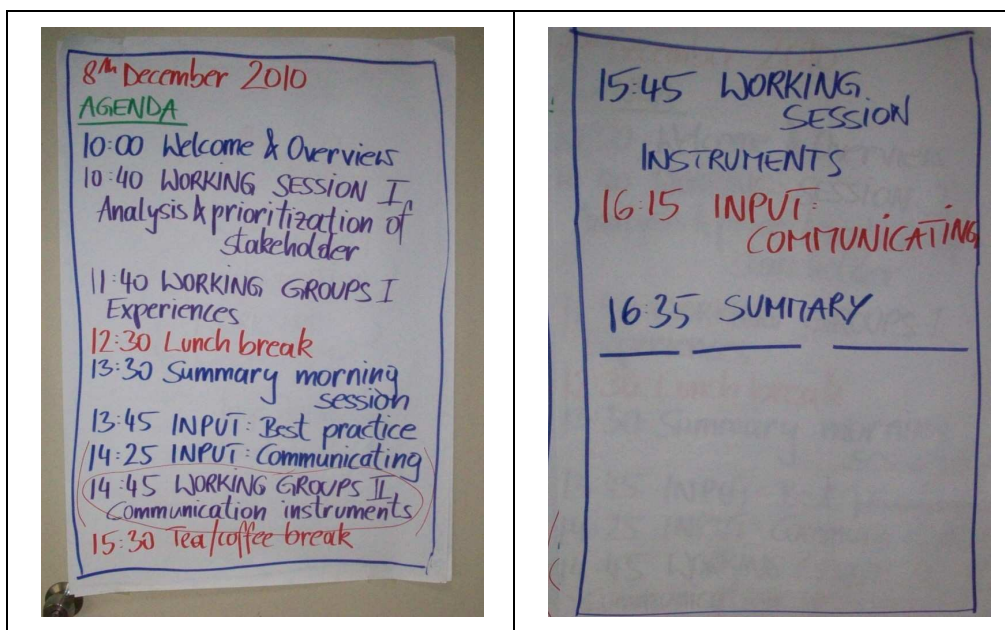 8th December 2010
AGENDA
10:00 Welcome & Overview
10:40 WORKING SESSION I
Analysis & prioritization of
stakeholder
11:40 WORKING GROUPS I
Experiences
12:30 Lunch break
13:30 Summary morning
session
13:45 INPUT: Best practice
14:25 INPUT: Communicating
14:45 WORKING GROUPS II
Communication instruments
15:30 Tea/coffee break
15:45 WORKING
SESSION
INSTRUMENTS
16:15 INPUT:
COMMUNICATING
16:35 SUMMARY